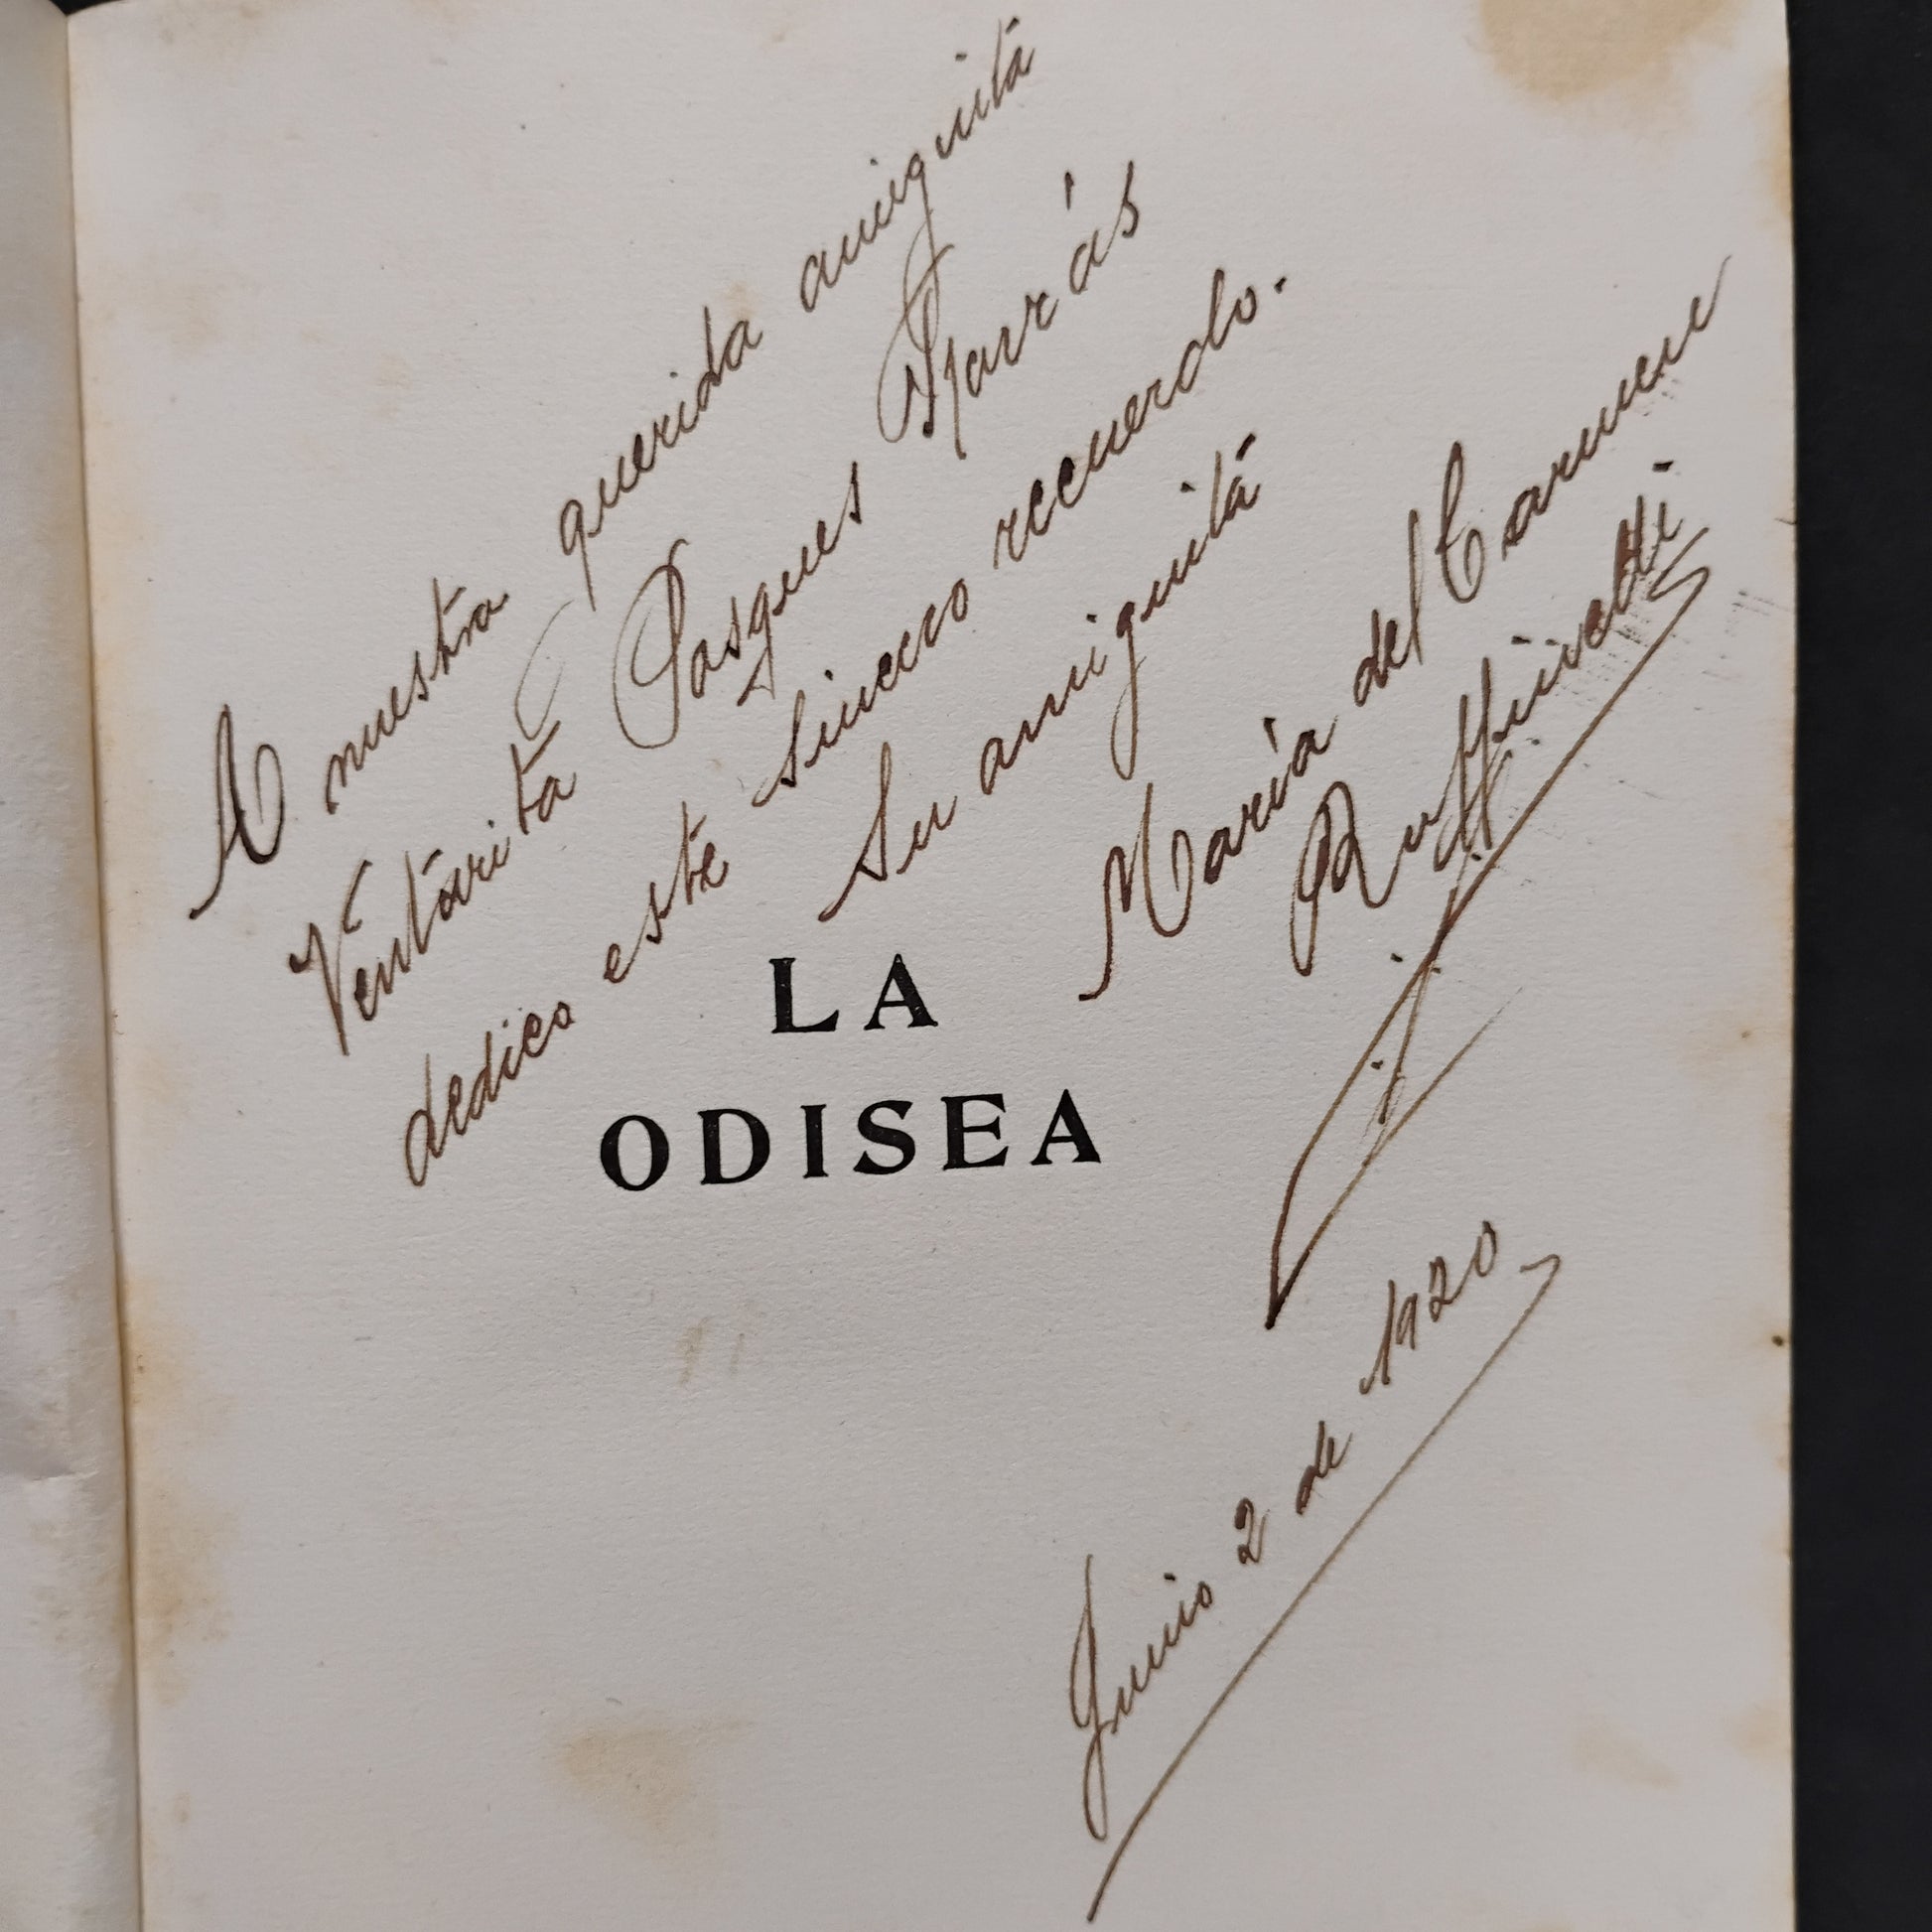 A nuestra querida amiguita
Ventarita Pasques
dedico este sincero recuerdo.
Su amiguita
María del Carmen
Ruffinelli
LA
ODISEA
Junio 2 de 1920